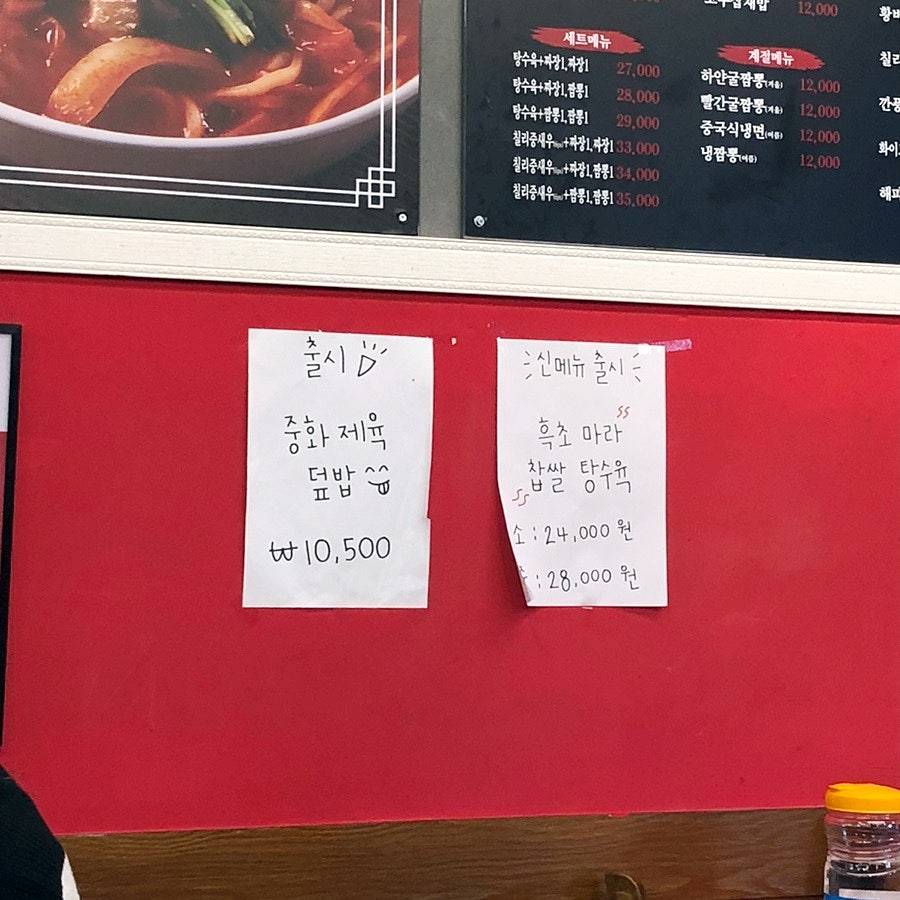 12,000
세트메뉴
탕수육+짜장1,짜장1 27,000
탕수육+짜장1,짬뽕1 28,000
탕수육+짬뽕1,짬뽕1 29,000
칠리중새우+짜장1,짜장1 33,000
칠리중새우+짜장1,짬뽕1 34,000
칠리중새우+짬뽕1,짬뽕1 35,000
계절메뉴
하얀굴짬뽕(겨울) 12,000
빨간굴짬뽕(겨울) 12,000
중국식냉면(여름) 12,000
냉짬뽕(여름) 12,000
출시
중화 제육
덮밥
₩10,500
신메뉴 출시
흑초 마라
찹쌀 탕수육
소 : 24,000 원
: 28,000 원